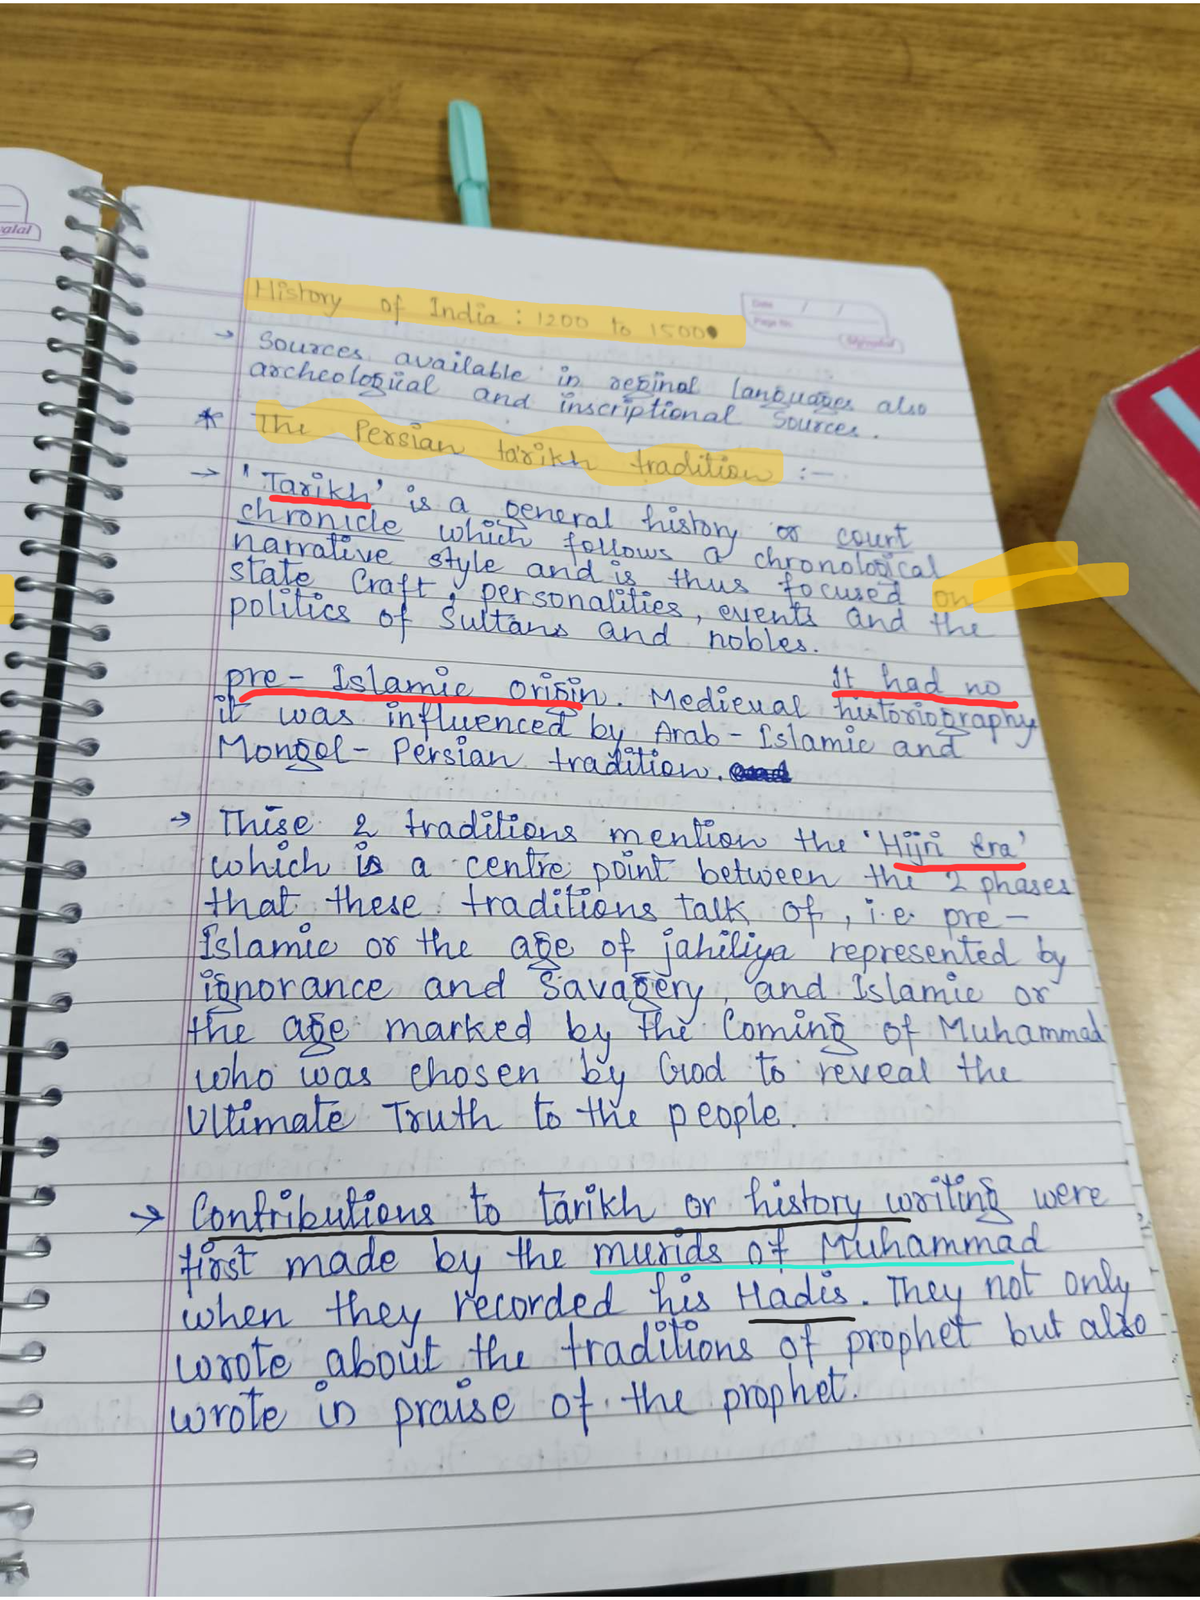 glal
Date / /
Page No.
History of India : 1200 to 1500
→ Sources available in reginal languages also
archeological and inscriptional Sources.
* The Persian tarikh tradition :-
→ 'Tarikh' is a general history or court
chronicle which follows a chronological
narrative style and is thus focused on
state Craft, personalities, events and the
politics of Sultans and nobles.
It had no
pre-Islamic origin. Medieval historiography
it was influenced by Arab-Islamic and
Mongol-Persian tradition.
→ Thise 2 traditions mention the 'Hijri Era'
which is a centre point between the 2 phases
that these traditions talk of, i.e. pre-
Islamic or the age of jahiliya represented by
ignorance and Savagery, and Islamic or
the age marked by the Coming of Muhammad
who was chosen by God to reveal the
Ultimate Truth to the people.
→ Contributions to tarikh or history writing were
first made by the murids of Muhammad
when they recorded his Hadis. They not only
wrote about the traditions of prophet but also
wrote in praise of the prophet.